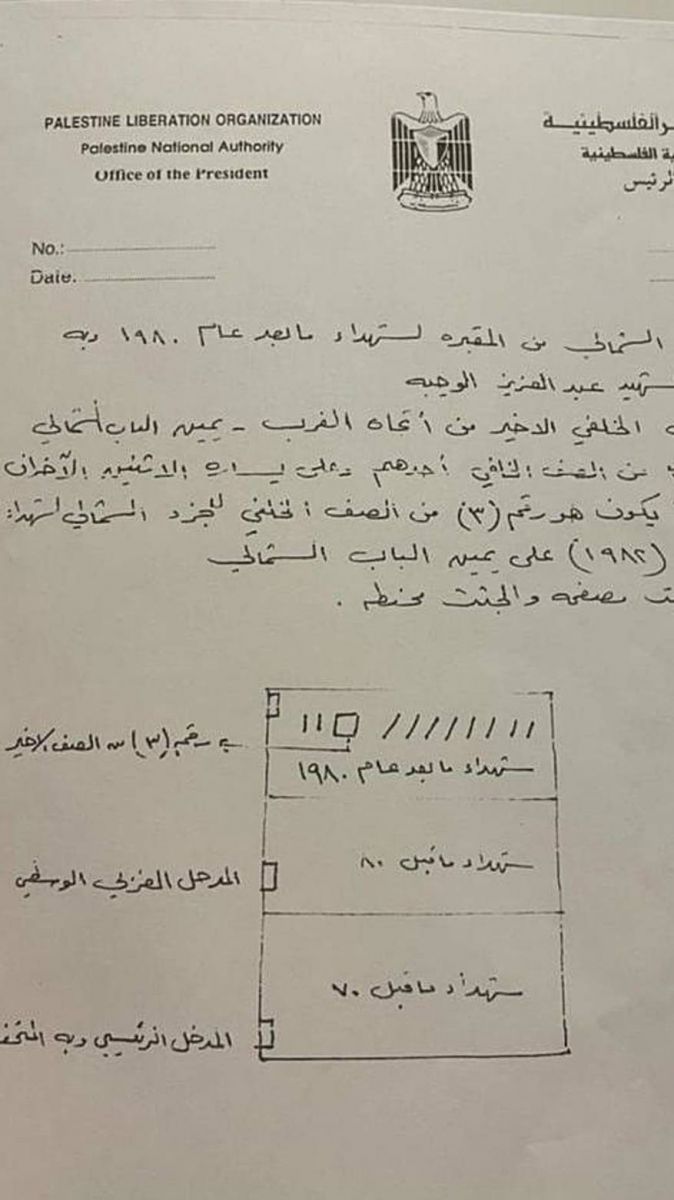 PALESTINE LIBERATION ORGANIZATION
Palestine National Authority
Office of the President
الفلسطينية
الفلسطينية
الرئيس
No.:
Date.
الشمالي من المقبره لشهداء ما بعد عام ١٩٨٠ وبه
شهيد عبد العزيز الوجيه
الخلفي الاخير من أتجاه الغرب - يمين الباب الشمالي
من الصف الخلفي أحدهم وعلى يساره الاثنين الآخران
يكون هو رقم (٣) من الصف الخلفي للجزء الشمالي لشهداء
(١٩٨٢) على يمين الباب الشمالي
مصفحه والجثث محنطه .
رقم (٣) من الصف الاخير
شهداء ما بعد عام ١٩٨٠
شهداء ماقبل ٨٠
المدخل الغربي الوسطي
شهداء ماقبل ٧٠
المدخل الرئيسي وبه